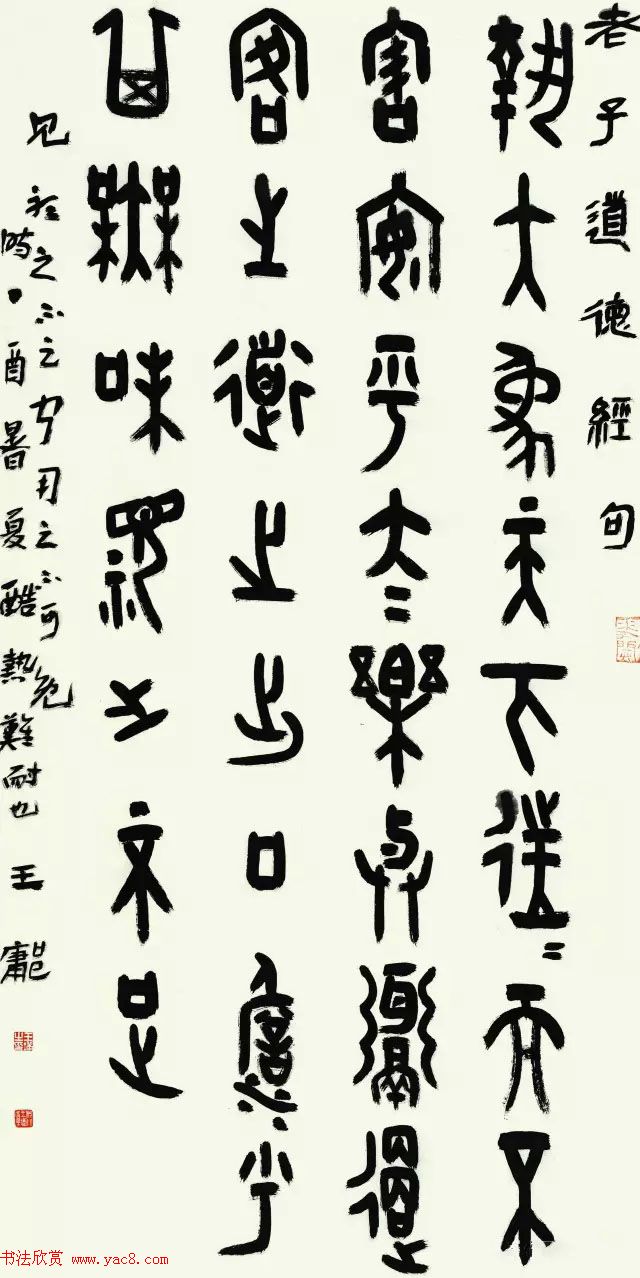 老子道德經句
執大象天下往〻而不
害安平大〻樂與餌過
客止道之出口淡乎
其無味視之不足
見 之不 用之不可
時丁酉暑夏酷熱難耐也 王
书法欣赏 www.yac8.com